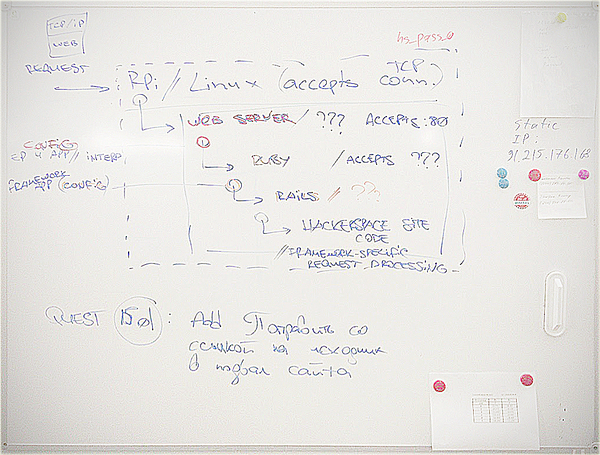 TCP/IP
WEB
REQUEST
hs_pass
RPi // Linux (accepts TCP conn.)
WEB SERVER / ??? ACCEPTS :80
CONFIG
APP // INTERP
RUBY / ACCEPTS ???
FRAMEWORK
APP (CONFIG)
RAILS // ???
HACKERSPACE SITE
CODE
// FRAMEWORK-SPECIFIC
REQUEST PROCESSING
Static
IP:
91.215.176.168
QUEST : Add Поправить со
ссылкой на исходник
в подвал сайта